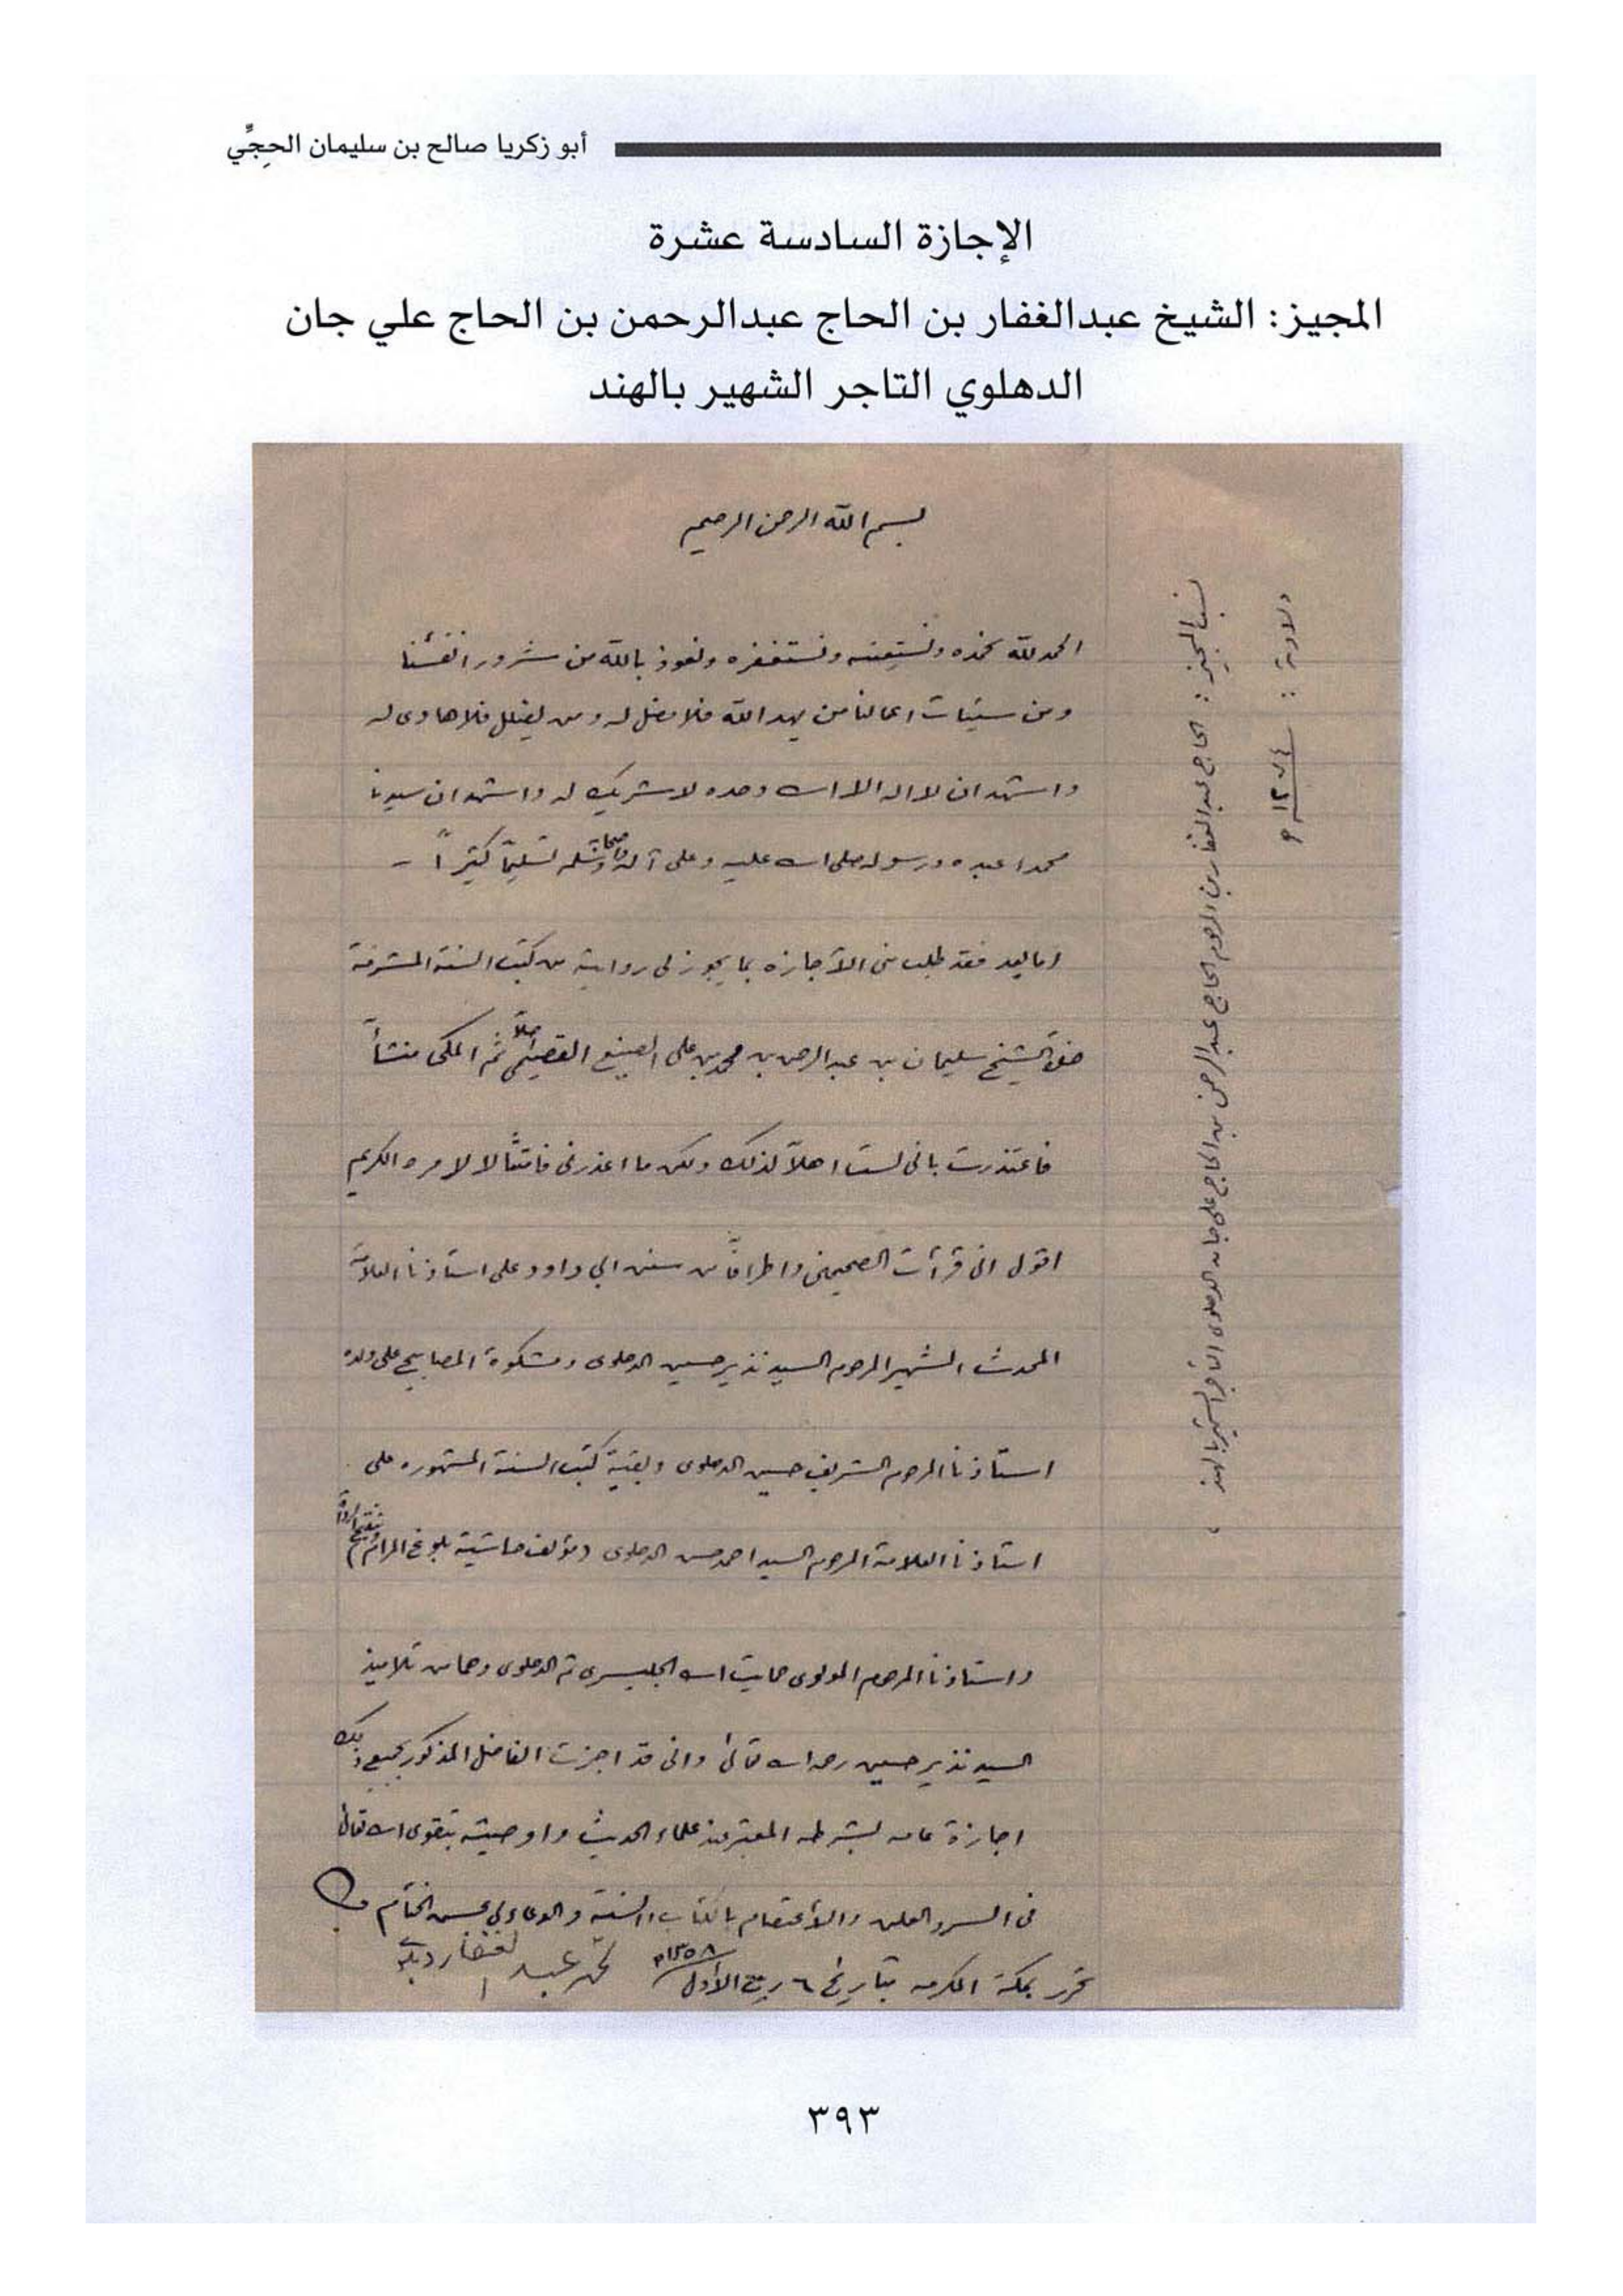 أبو زكريا صالح بن سليمان الحِجِّي
الإجازة السادسة عشرة
المجيز: الشيخ عبدالغفار بن الحاج عبدالرحمن بن الحاج علي جان
الدهلوي التاجر الشهير بالهند
بسم الله الرحمن الرحيم
الحمد لله نحمده ونستعينه ونستغفره ونعوذ بالله من شرور انفسنا
ومن سيئات اعمالنا من يهد الله فلا مضل له ومن يضلل فلا هادى له
واشهد ان لا اله الا الله وحده لا شريك له واشهد ان سيدنا
محمدا عبده ورسوله صلى الله عليه وعلى آله وصحابته وسلم تسليماً كثيراً -
اما بعد فقد طلب منى الأجازه بما يجوز لى روايته من كتب السنة المشرفة
الشيخ سليمان بن عبدالرحمن بن محمد بن على الصنيع القصيمى اصلاً ثم المكى منشأً
فاعتذرت بانى لست اهلاً لذلك ولكن ما اعذرنى فامتثالا لامره الكريم
اقول انى قرآت الصحيحين واطرافاً من سنن ابي داود على استاذنا العلامة
المحدث الشهير المرحوم السيد نذير حسين الدهلوى ومشكوة المصابيح على ولده
استاذنا المرحوم الشريف حسين الدهلوى وبقية كتب السنة المشهوره على
استاذنا العلامة المرحوم السيد احمد حسن الدهلوى (مؤلف حاشية بلوغ المرام وتنقيح الرواة)
واستاذنا المرحوم المولوى حمايت الله الجليسرى ثم الدهلوى وهما من تلاميذ
السيد نذير حسين رحمه الله تعالى وانى قد اجزت الفاضل المذكور بجميع ذلك
اجازة عامه بشرطه المعتبر عند علماء الحديث واوصيته بتقوى الله تعالى
فى السر والعلن والأعتصام بالكتاب والسنة والدعاء لى بحسن الختام
تحرر بمكة المكرمه بتاريخ ٦ ربيع الأول ١٣٥٨ه محمد عبد الغفار
نسب المجيز : الحاج عبدالغفار بن المرحوم الحاج عبدالرحمن بن الحاج على جان الدهلوى التاجر الشهير بالهند .
ولادته :
٣٩٣